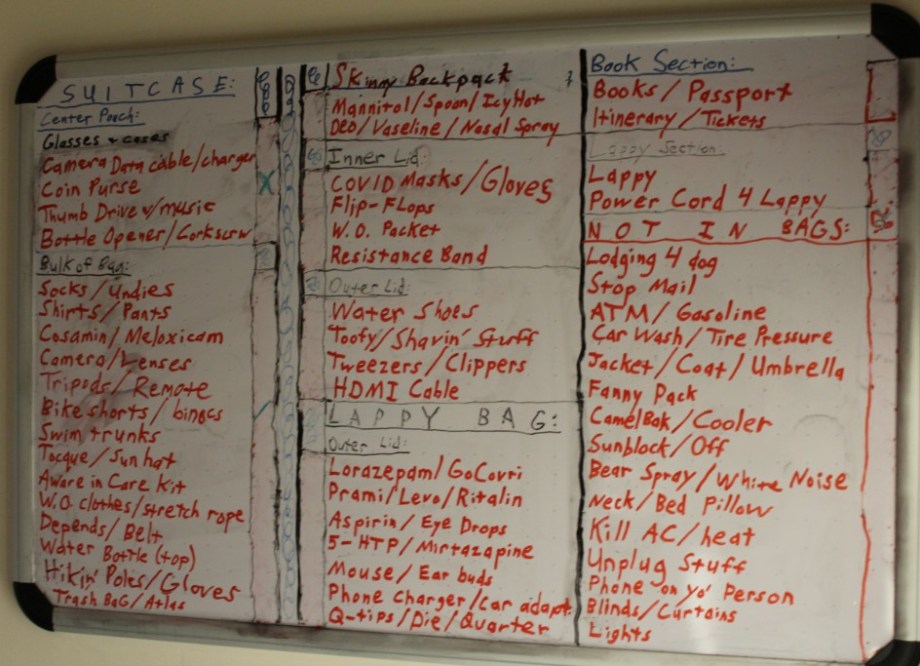 SUITCASE:
Center Pouch:
Glasses + cases
Camera Data cable/charger
Coin Purse
Thumb Drive w/music
Bottle Opener/Corkscrw
Bulk of Bag:
Socks/Undies
Shirts/Pants
Cosamin/Meloxicam
Camera/Lenses
Tripods/Remote
Bike shorts/binocs
Swim trunks
Tocque/Sun hat
Aware in Care Kit
W.O. clothes/stretch rope
Depends/Belt
Water Bottle (top)
Hikin' Poles/Gloves
Trash BaG/Atlas
Skinny Backpack
Mannitol/Spoon/IcyHot
Deo/Vaseline/Nasal Spray
Inner Lid:
COVID Masks/Gloves
Flip-FLops
W.O. Packet
Resistance Band
Outer Lid:
Water Shoes
Toofy/Shavin' Stuff
Tweezers/Clippers
HDMI Cable
LAPPY BAG:
Outer Lid:
Lorazepam/GoCovri
Prami/Levo/Ritalin
Aspirin/Eye Drops
5-HTP/Mirtazapine
Mouse/Ear buds
Phone Charger/car adapt.
Q-tips/Die/Quarter
Book Section:
Books/Passport
Itinerary/Tickets
Lappy Section:
Lappy
Power Cord 4 Lappy
NOT IN BAGS:
Lodging 4 dog
Stop Mail
ATM/Gasoline
Car Wash/Tire Pressure
Jacket/Coat/Umbrella
Fanny Pack
CamelBak/Cooler
Sunblock/Off
Bear Spray/White Noise
Neck/Bed Pillow
Kill AC/heat
Unplug Stuff
Phone on yo' Person
Blinds/Curtains
Lights